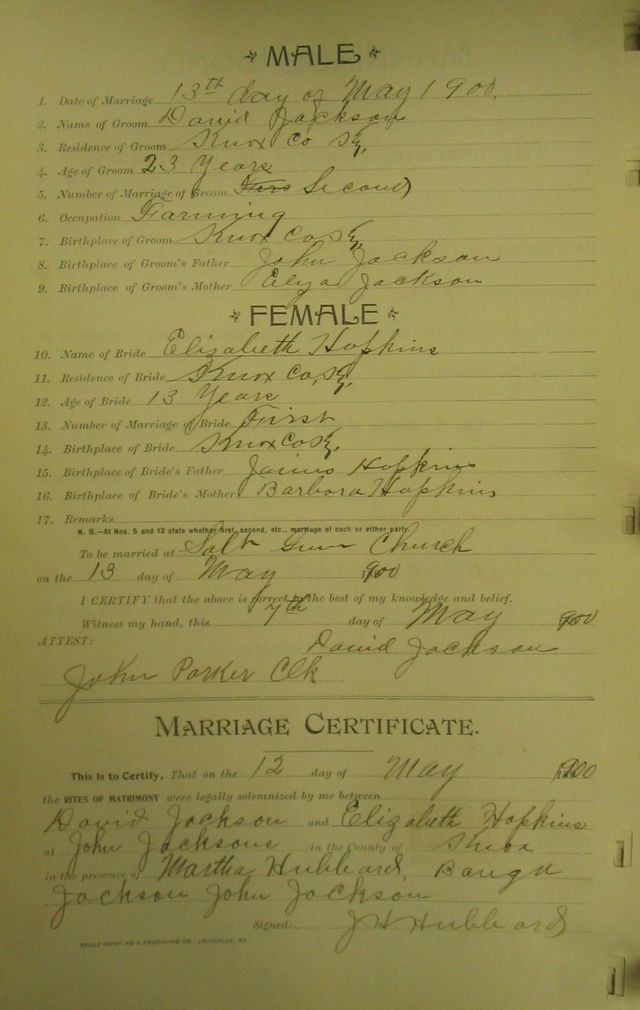 MALE
1. Date of Marriage 13th day of May 1900.
2. Name of Groom David Jackson
3. Residence of Groom Knox Co Ky,
4. Age of Groom 23 Years
5. Number of Marriage of Groom Second
6. Occupation Farming
7. Birthplace of Groom Knox Co Ky,
8. Birthplace of Groom's Father John Jackson
9. Birthplace of Groom's Mother Elyza Jackson
FEMALE
10. Name of Bride Elizabeth Hopkins
11. Residence of Bride Knox Co, Ky,
12. Age of Bride 13 Years
13. Number of Marriage of Bride First
14. Birthplace of Bride Knox Co Ky,
15. Birthplace of Bride's Father Hopkins
16. Birthplace of Bride's Mother Barbora Hopkins
17. Remarks
N. B.—At Nos. 5 and 13 state whether first, second, etc., marriage of each or either party.
To be married at Church
on the 13 day of May 1900
I CERTIFY that the above is correct to the best of my knowledge and belief.
Witness my hand, this 7th day of May 1900
David Jackson
ATTEST:
John Parker Clk
MARRIAGE CERTIFICATE.
This is to Certify, That on the 12 day of May 1900
the RITES OF MATRIMONY were legally solemnized by me between
David Jackson and Elizabeth Hopkins
at John Jacksons in the County of Knox
in the presence of Martha Hubbard,
Jackson John Jackson
Signed J H Hubbard